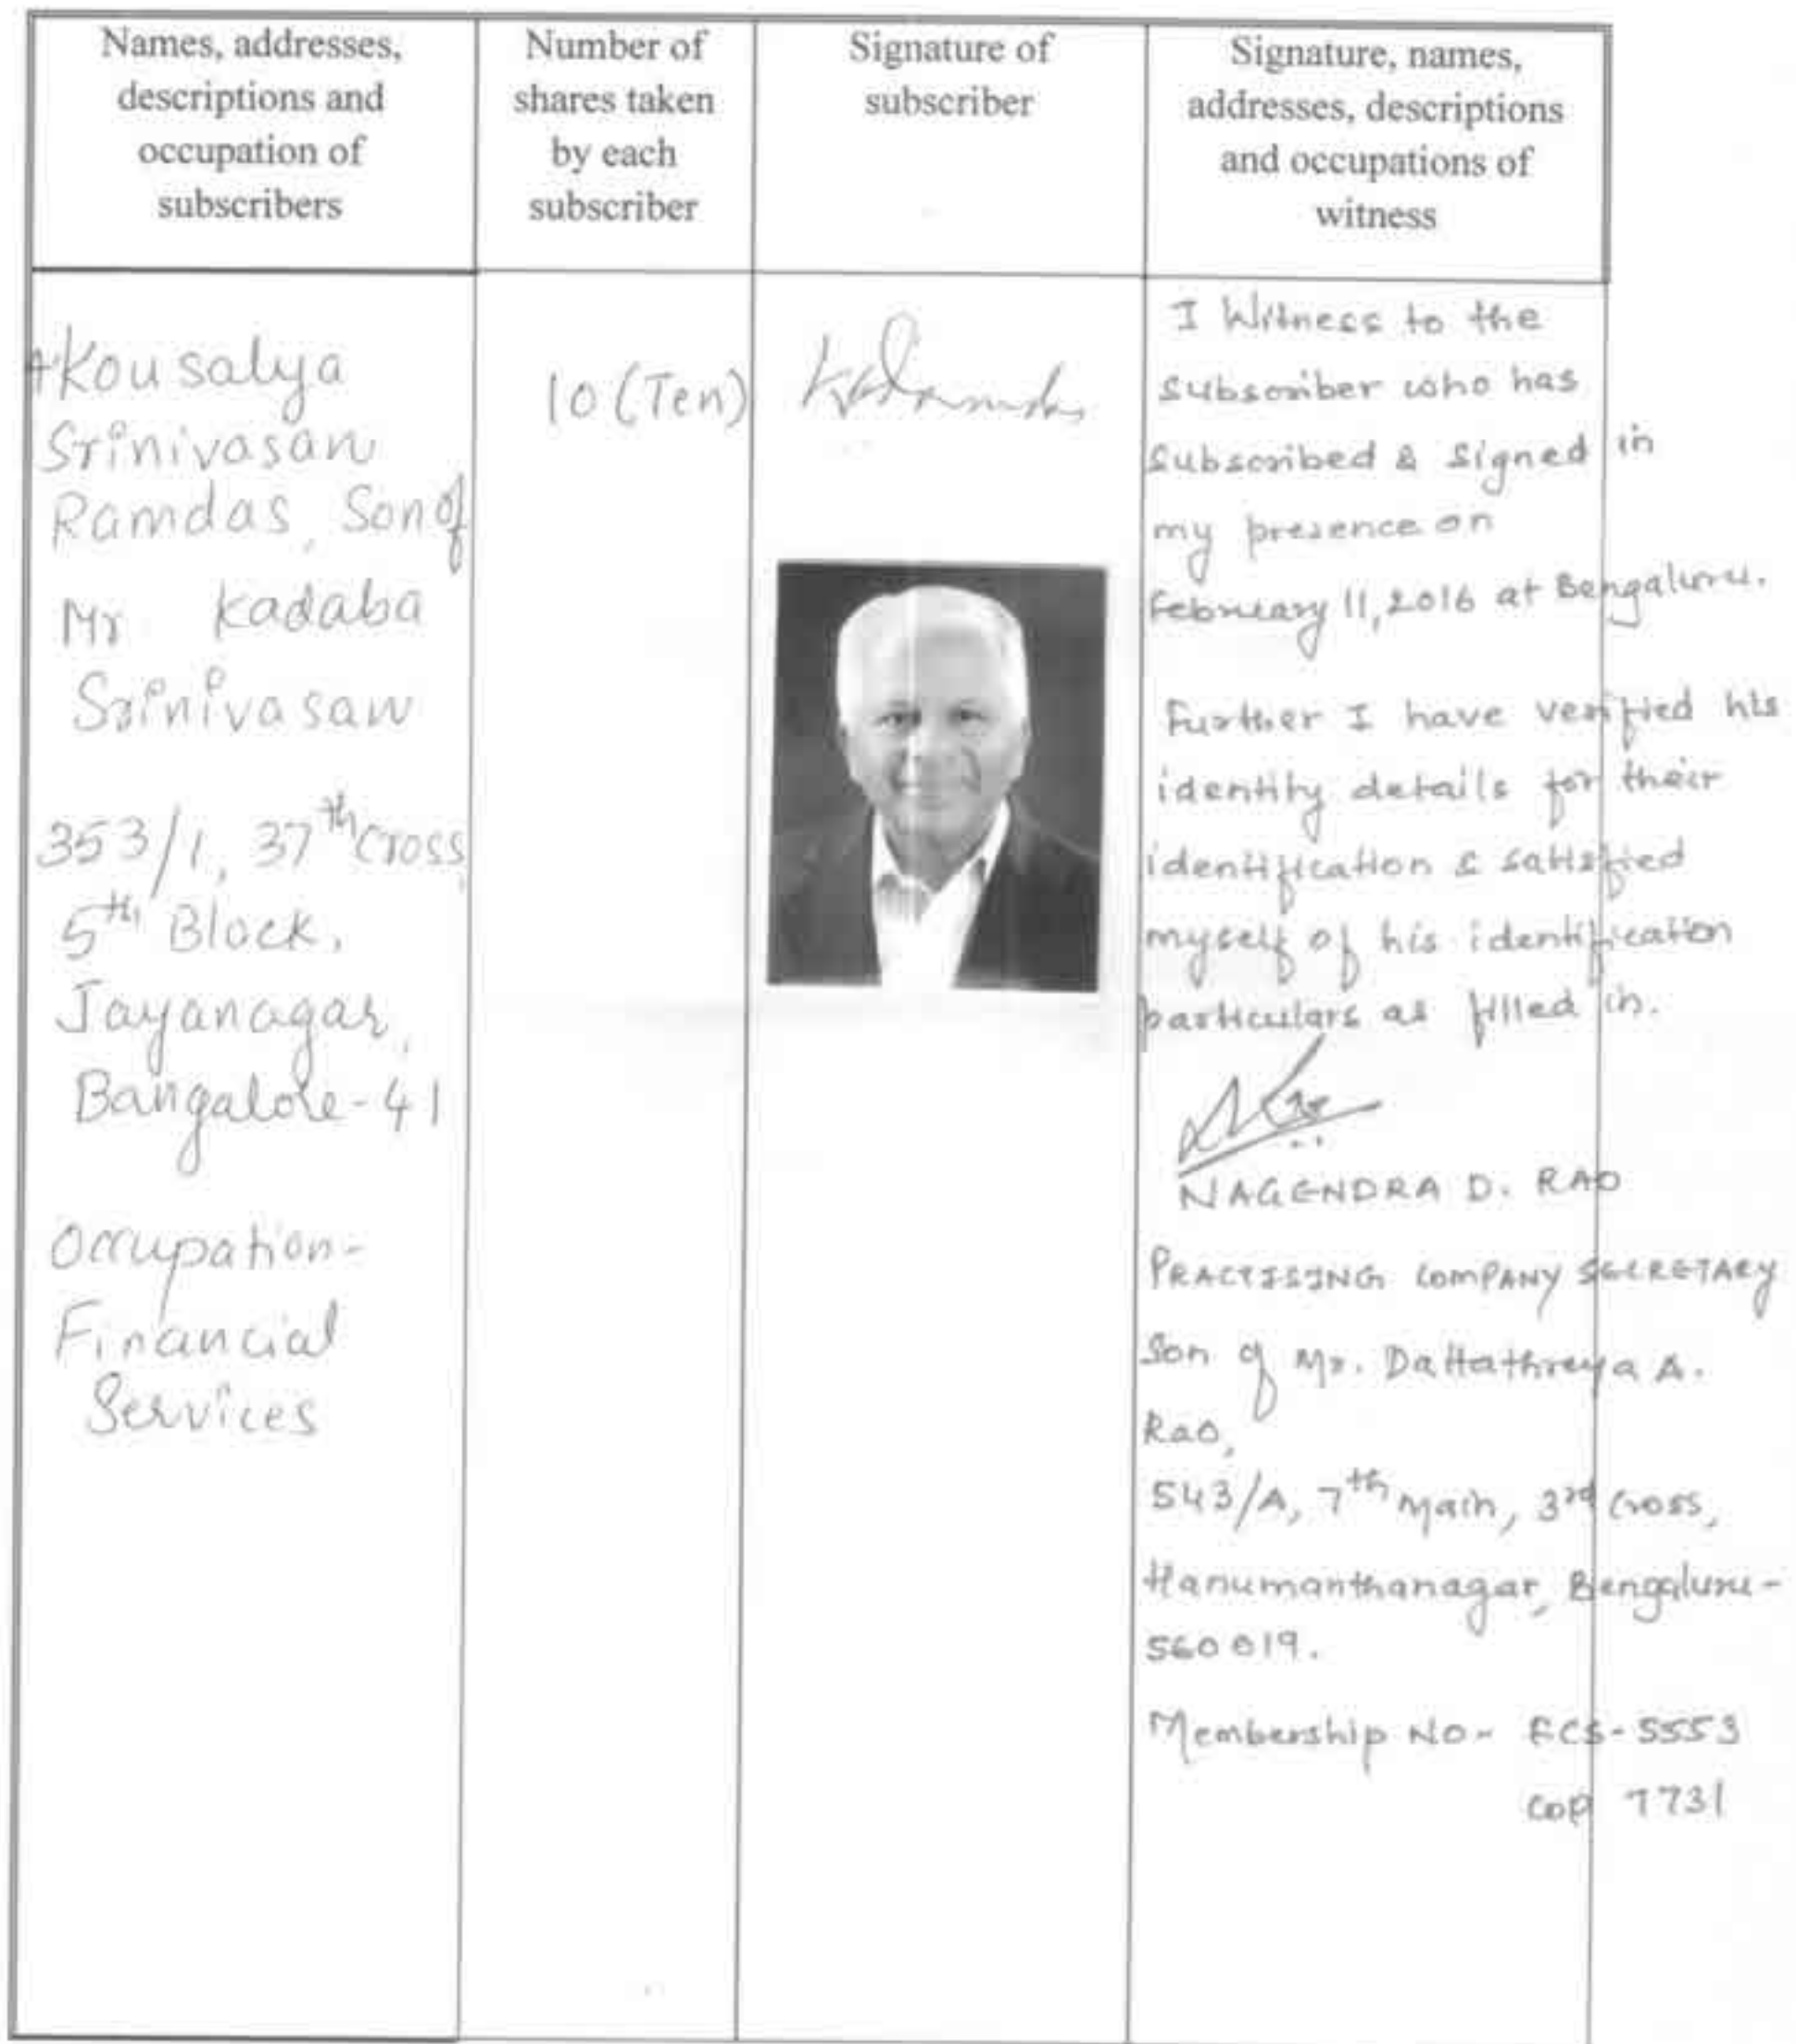 Names, addresses,
descriptions and
occupation of
subscribers
Number of
shares taken
by each
subscriber
Signature of
subscriber
Signature, names,
addresses, descriptions
and occupations of
witness
Kousalya
Srinivasan
Ramdas, Son of
Mr Kadaba
Srinivasan
353/1, 37th Cross,
5th Block,
Jayanagar,
Bangalore-41
Occupation-
Financial
Services
10 (Ten)
I Witness to the
subscriber who has
subscribed & signed in
my presence on
February 11, 2016 at Bengaluru.
Further I have verified his
identity details for their
identification & satisfied
myself of his identification
particulars as filled in.
NAGENDRA D. RAO
PRACTISING COMPANY SECRETARY
Son of Mr. Dattathreya A.
Rao,
543/A, 7th Main, 3rd Cross,
Hanumanthanagar, Bengaluru-
560019.
Membership No- FCS-5553
COP 7731